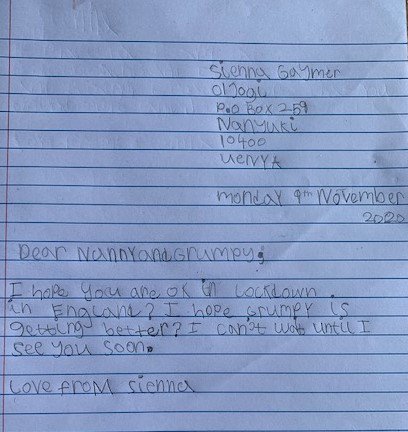 Sienna Gaymer
Ol Jogi
P.O Box 259
Nanyuki
10400
KENYA
monday 9th November
2020
Dear Nanny and Grumpy,
I hope you are ok in Lockdown
in England? I hope Grumpy is
getting better? I can't wat until I
see you soon.
Love from Sienna